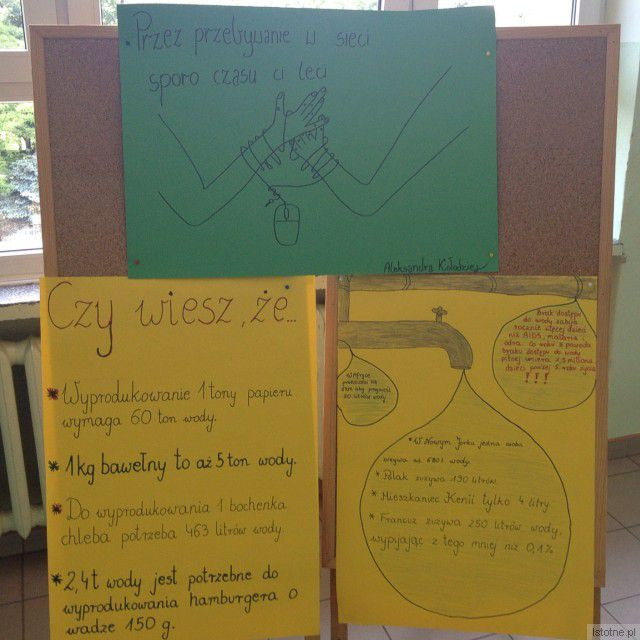 Przez przebywanie w sieci
sporo czasu ci leci
Aleksandra Kołodziej
Czy wiesz, że...
* Wyprodukowanie 1 tony papieru
wymaga 60 ton wody.
* 1 kg bawełny to aż 5 ton wody.
* Do wyprodukowania 1 bochenka
chleba potrzeba 463 litrów wody.
* 2,4 t wody jest potrzebne do
wyprodukowania hamburgera o
wadze 150 g.
Brak dostępu
do wody zabija
rocznie więcej dzieci
niż AIDS, malaria i
odra. Co roku z powodu
braku dostępu do wody
pitnej umiera 2,5 miliona
dzieci poniżej 5. roku życia
!!!
litrów wody.
* W Nowym Jorku jedna osoba
zużywa aż 680 l wody.
* Polak zużywa 190 litrów
* Mieszkaniec Kenii tylko 4 litry
* Francuz zużywa 250 litrów wody,
wypijając z tego mniej niż 0,1%
Istotne.pl